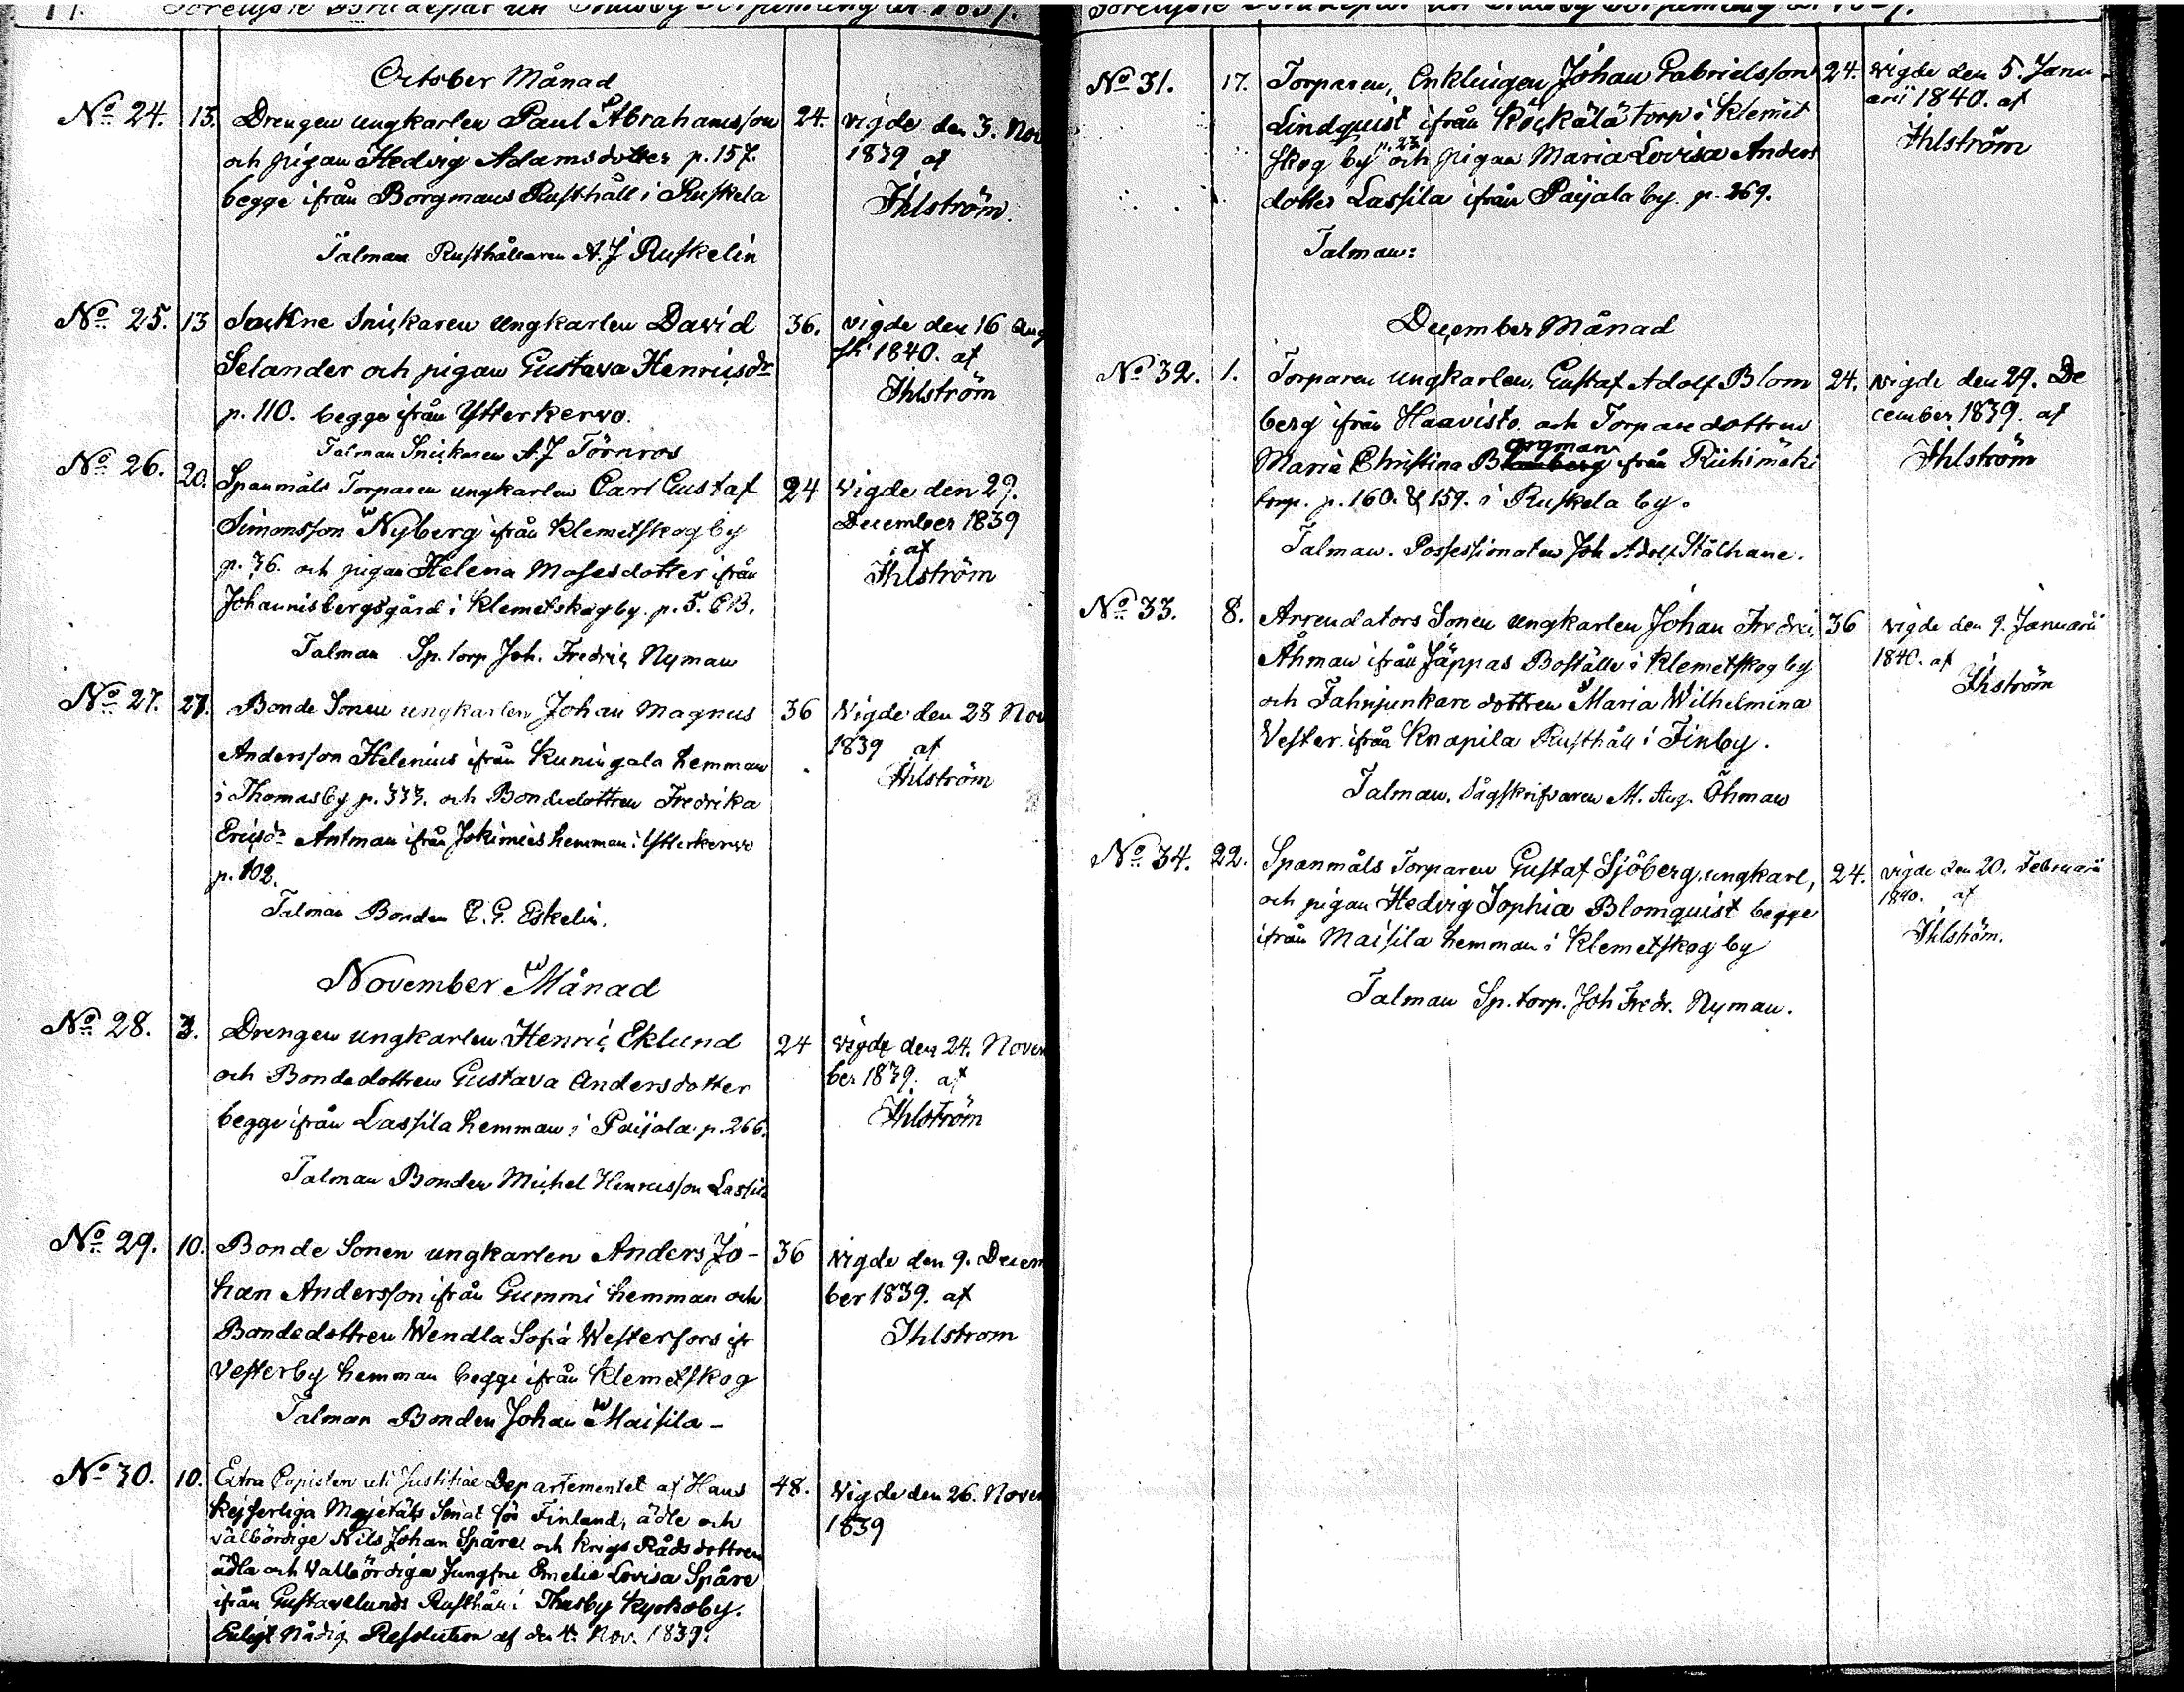 October Månad
No 24. 13. Drengen ungkarlen Paul Abrahamsson 24. vigde den 3. Nov
och pigan Hedvig Adamsdotter p. 157. 1839 af
begge ifrån Borgmans Rusthåll i Ruskela Ihlström.
Talman Rusthållaren A. J Ruskelin
No 25. 13 Sockne Snickaren Ungkarlen David 36. vigde den 16 Aug
Selander och pigan Gustava Henricsdr sti 1840. af
p. 110. begge ifrån Ytterkervo. Ihlström
Talman Snickaren A. J Törnros
No 26. 20. Spanmåls Torparen ungkarlen Carl Gustaf 24 Vigde den 29.
Simonsson Nyberg ifrån Klemetskog by December 1839
p. 76. och pigan Helena Mosesdotter ifrån af
Johannisbergsgård i Klemetskog by. p. 5. CB. Ihlström
Talman Sp. torp Joh. Fredric Nyman
No 27. 27. Bonde Sonen ungkarlen Johan Magnus 36 Vigde den 28 Nov
Andersson Helenius ifrån Kuningala hemman 1839 af
i Thomasby p. 333. och Bondedottren Fredrika Ihlström
Ericsdr Antman ifrån Jokimies hemman i Ytterkervo
p. 102.
Talman Bonden E. G. Eskelin.
November Månad
No 28. 3. Drengen ungkarlen Henric Eklund 24 Vigde den 24. Novem
och Bondedottren Gustava Andersdotter ber 1839. af
begge ifrån Lassila hemman i Paijala p. 266. Ihlström
Talman Bonden Michel Henricsson Lassila
No 29. 10. Bonde Sonen ungkarlen Anders Jo- 36 Vigde den 9. Decem
han Andersson ifrån Gummi hemman och ber 1839. af
Bondedottren Wendla Sofia Westerfors ifr Ihlstrom
Vesterby hemman begge ifrån Klemetskog
Talman Bonden Johan Maisila -
No 30. 10. Extra Copisten uti Justitiae Departementet af Hans 48. Vigde den 26. Novem
Kejserliga Majestäts Senat för Finland, ädle och 1839
välbördige Nils Johan Spåre och Krigs Råds dottren
ädla och Välbördiga Jungfru Emelie Lovisa Spåre
ifrån Gustavelunds Rusthåll i Thusby Kyrkoby.
Enligt Nådig Resolution af den 4. Nov. 1839.
No 31. 17. Torparen, Enklingen Johan Gabrielsson 24. Vigde den 5. Janu
Lindquist ifrån Köckälä torp i Klemet arii 1840. af
skog by p. 23 och pigan Maria Lovisa Anders Ihlström
dotter Lassila ifrån Paijala by. p. 269.
Talman:
December Månad
No 32. 1. Torparen ungkarlen, Gustaf Adolf Blom 24. Vigde den 29. De
berg ifrån Haavisto. och Torpare dottren cember 1839. af
Maria Christina Borgman ifrån Riihimäki Ihlström
torp. p. 160. & 159. i Ruskela by.
Talman. Possessionaten Joh Adolf Stålhane.
No 33. 8. Arrendators Sonen ungkarlen Johan Fredric 36 Vigde den 9. Januarii
Åhman ifrån Jäppas Boställe i Klemetskog by 1840. af
och Fahnjunkare dottren Maria Wilhelmina Ihström
Vester. ifrån Knapila Rusthåll i Finby.
Talman. Sågskrifvaren M. Aug. Öhman
No 34. 22. Spanmåls Torparen Gustaf Sjöberg, ungkarl, 24. Vigde den 20. Februarii
och pigan Hedvig Sophia Blomquist begge 1840. af
ifrån Maisila hemman i Klemetskog by Ihlström.
Talman Sp. torp. Joh Fredr. Nyman.